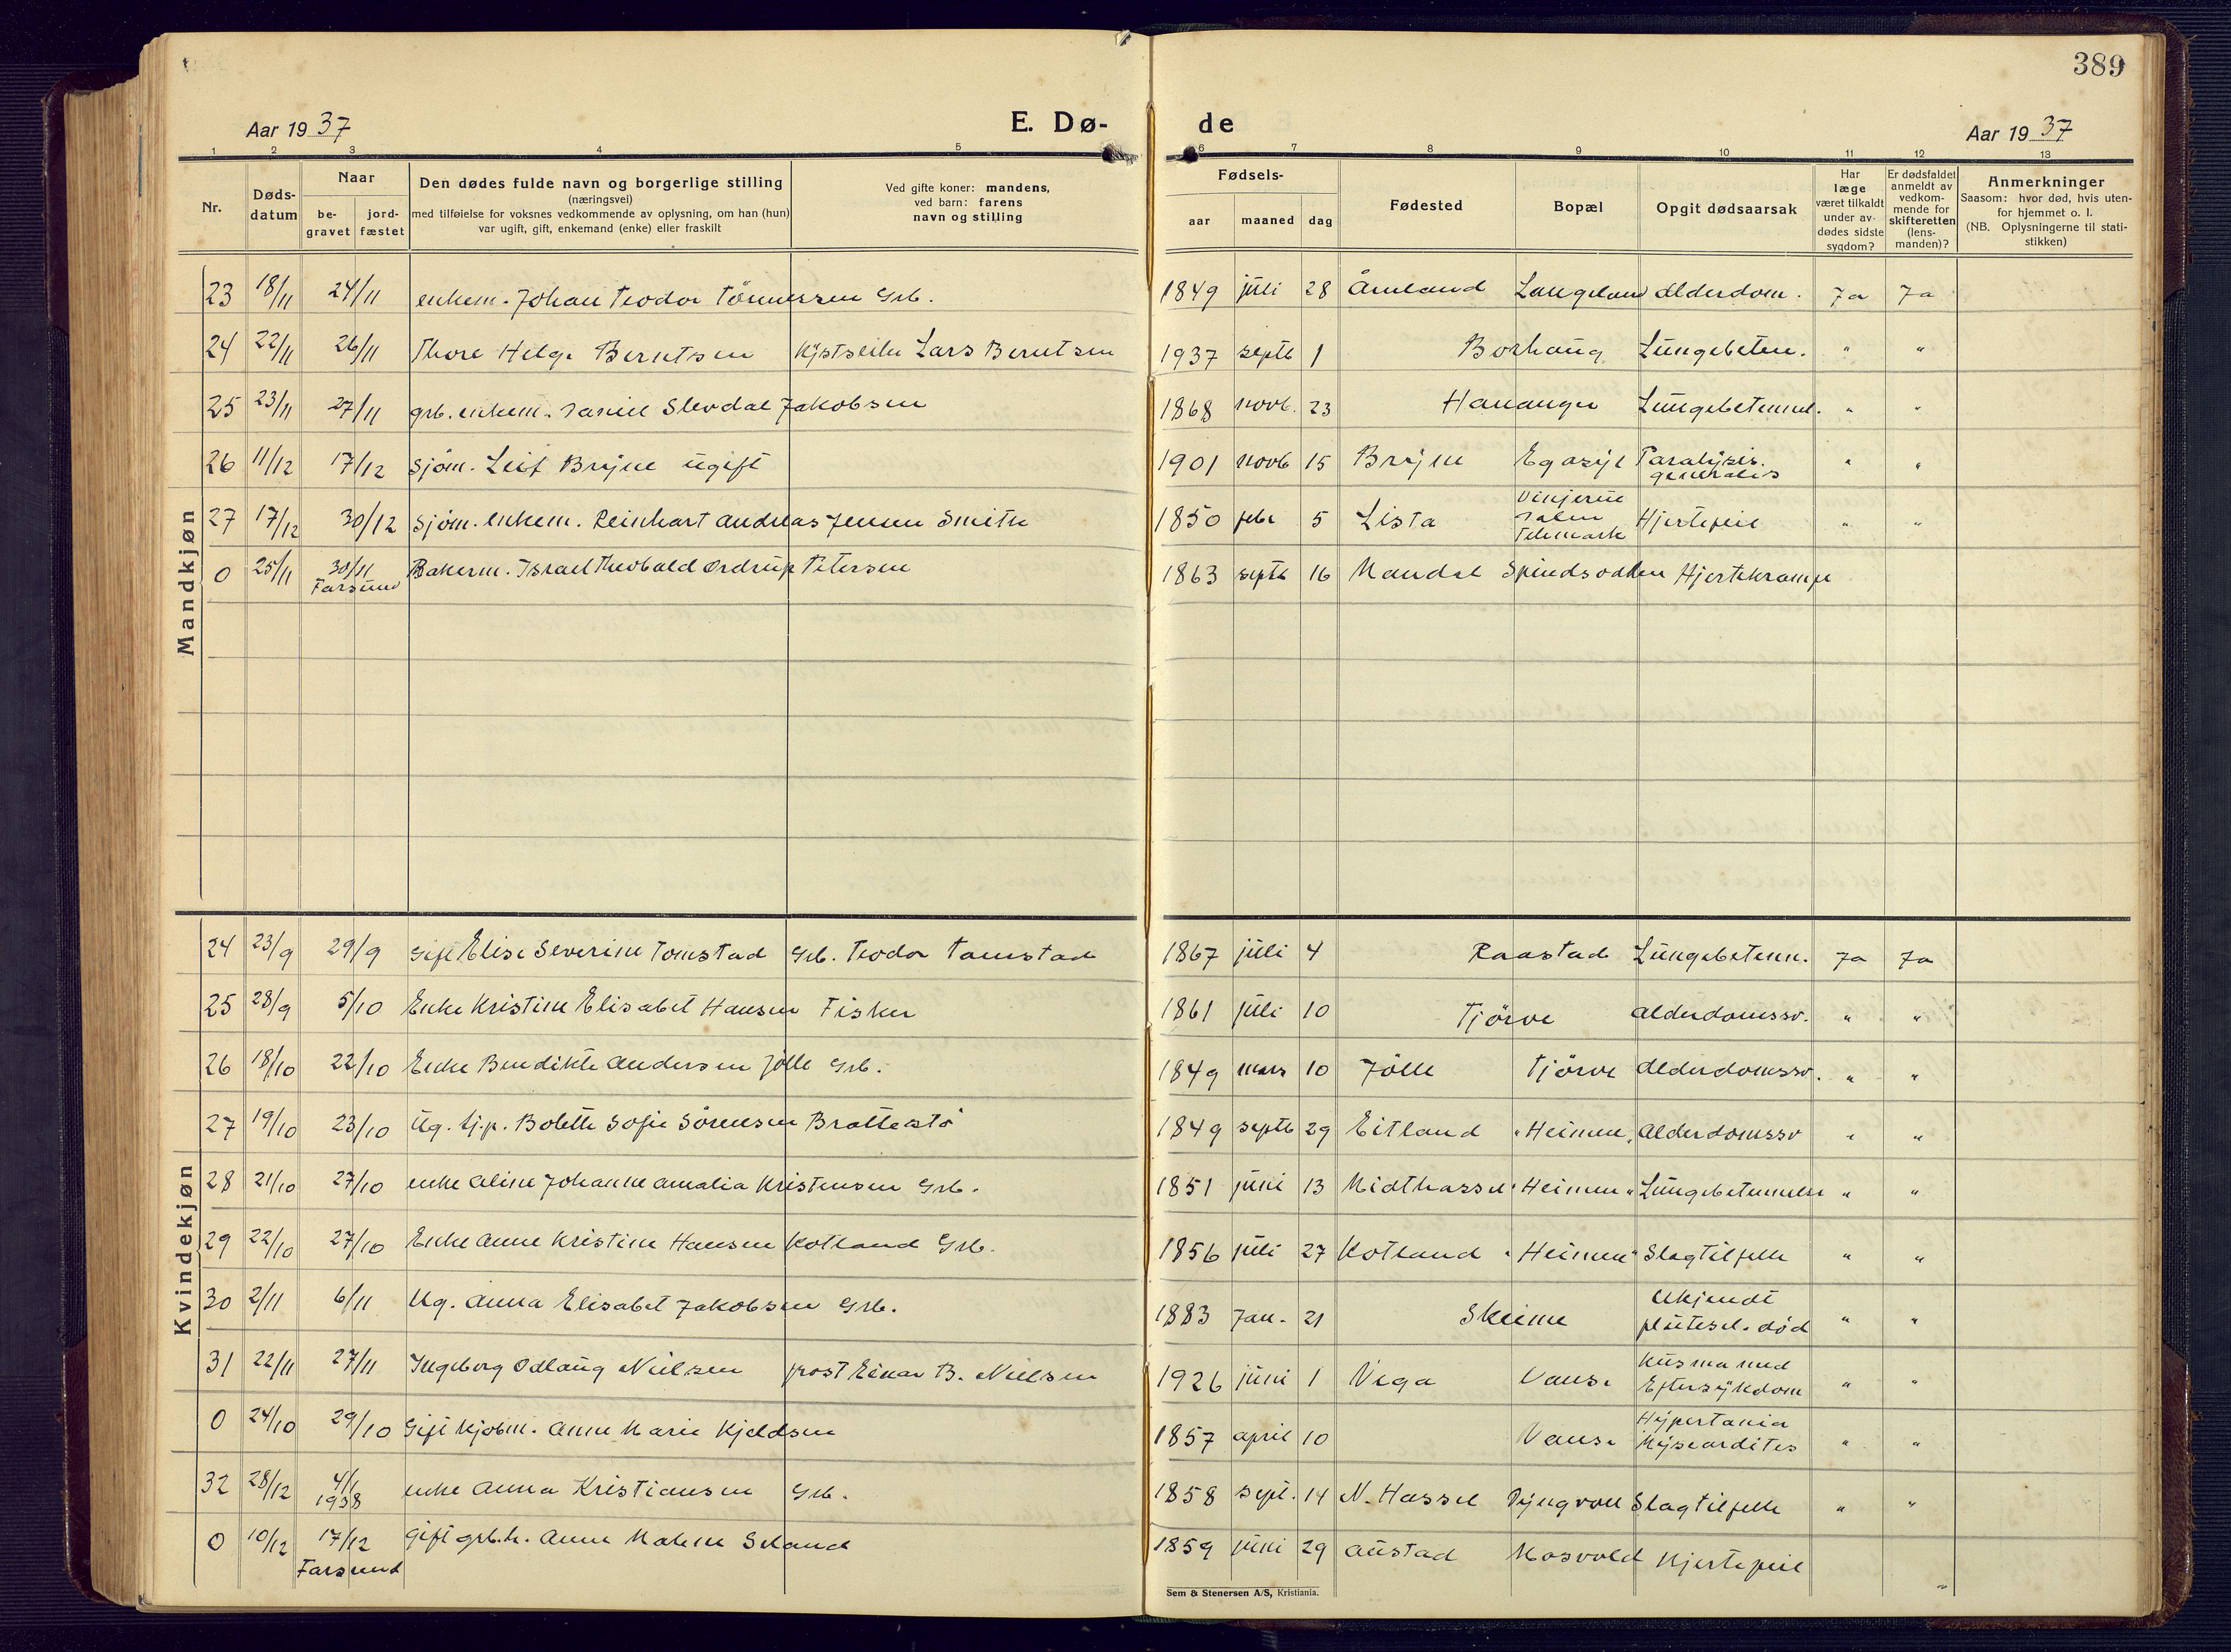 389
Aar 1937 E. Dø- de Aar 1937
1 2 3 4 5 6 7 8 9 10 11 12 13
Nr.
Døds-
datum
Naar
be-
gravet
jord-
fæstet
Den dødes fulde navn og borgerlige stilling
(næringsvei)
med tilføielse for voksnes vedkommende av oplysning, om han (hun)
var ugift, gift, enkemand (enke) eller fraskilt
Ved gifte koner: mandens,
ved barn: farens
navn og stilling
Fødsels-
aar maaned dag
Fødested
Bopæl
Opgit dødsaarsak
Har
læge
været tilkaldt
under av-
dødes sidste
sygdom?
Er dødsfaldet
anmeldt av
vedkom-
mende for
skifteretten
(lens-
manden)?
Anmerkninger
Saasom: hvor død, hvis uten-
for hjemmet o. l.
(NB. Oplysningerne til stati-
stikken)
Mandkjøn
23 18/11 24/11 enkem. Johan Teodor Tönnessen Grb. 1849 juli 28 Åmland Langeland Alderdom. Ja Ja
24 22/11 26/11 Thore Helge Berntsen Lars Berntsen 1937 septb 1 Borhaug Lungebeten. " "
25 23/11 27/11 grb. enkem. Daniel Slevdal Jakobsen 1868 novb. 23 Hananger Lungebetennel. " "
26 11/12 17/12 Sjöm. Leif Bryne ugift 1901 novb 15 Bryne Eg asyl Paralysis.
generalis " "
27 17/12 30/12 Sjöm. enkem. Reinhart Andreas Jensen Smith 1850 febr 5 Lista Vinjerue
Dalen
Telemark Hjertefeil " "
0 25/11 30/11
Farsund Bakerm. Israel Theobald Ordrup Petersen 1863 septb 16 Mandal Spindsodden Hjertekrampe
Kvindekjøn
24 23/9 29/9 Gift Elise Severine Tomstad Grb. Teodor Tomstad 1867 juli 4 Raastad Lungebetenn. Ja Ja
25 28/9 5/10 Enke Kristine Elisabet Hansen Fisker 1861 juli 10 Tjörve Alderdomssv. " "
26 18/10 22/10 Enke Bendikte Andersen Jölle Grb. 1849 mars 10 Jölle Tjörve Alderdomssv. " "
27 19/10 23/10 Ug. tj.p. Bolette Sofie Sörensen Brattestö 1849 septb 29 Eitland "Heimen" Alderdomssv " "
28 21/10 27/10 enke Aline Johanne Amalia Kristensen Grb. 1851 juni 13 Midthassel "Heimen" Lungebetennelse " "
29 22/10 27/10 Enke Anne Kristine Hansen Kotland Grb. 1856 juli 27 Kotland "Heimen" Slagtilfelle " "
30 2/11 6/11 Ug. Anna Elisabet Jakobsen Grb. 1883 Jan. 21 Skeime Ukjendt
plutsel. død " "
31 22/11 27/11 Ingeborg Odlaug Nielsen prost Einar B. Nielsen 1926 juni 1 Vega Vanse Kusma med
Eftersykdom " "
0 24/10 29/10 Gift Kjøbm. Anne Marie Kjeldsen 1857 april 10 Vanse " "
32 28/12 4/1
1938 enke Anna Kristiansen Grb. 1858 sept. 14 N. Hassel Dyngvoll Slagtilfelle " "
0 10/12 17/12
Farsund Gift grb.k. Anne Malene Seland 1859 juni 29 Austad Mosvold Hjertefeil "
Sem & Stenersen A/S, Kristiania.